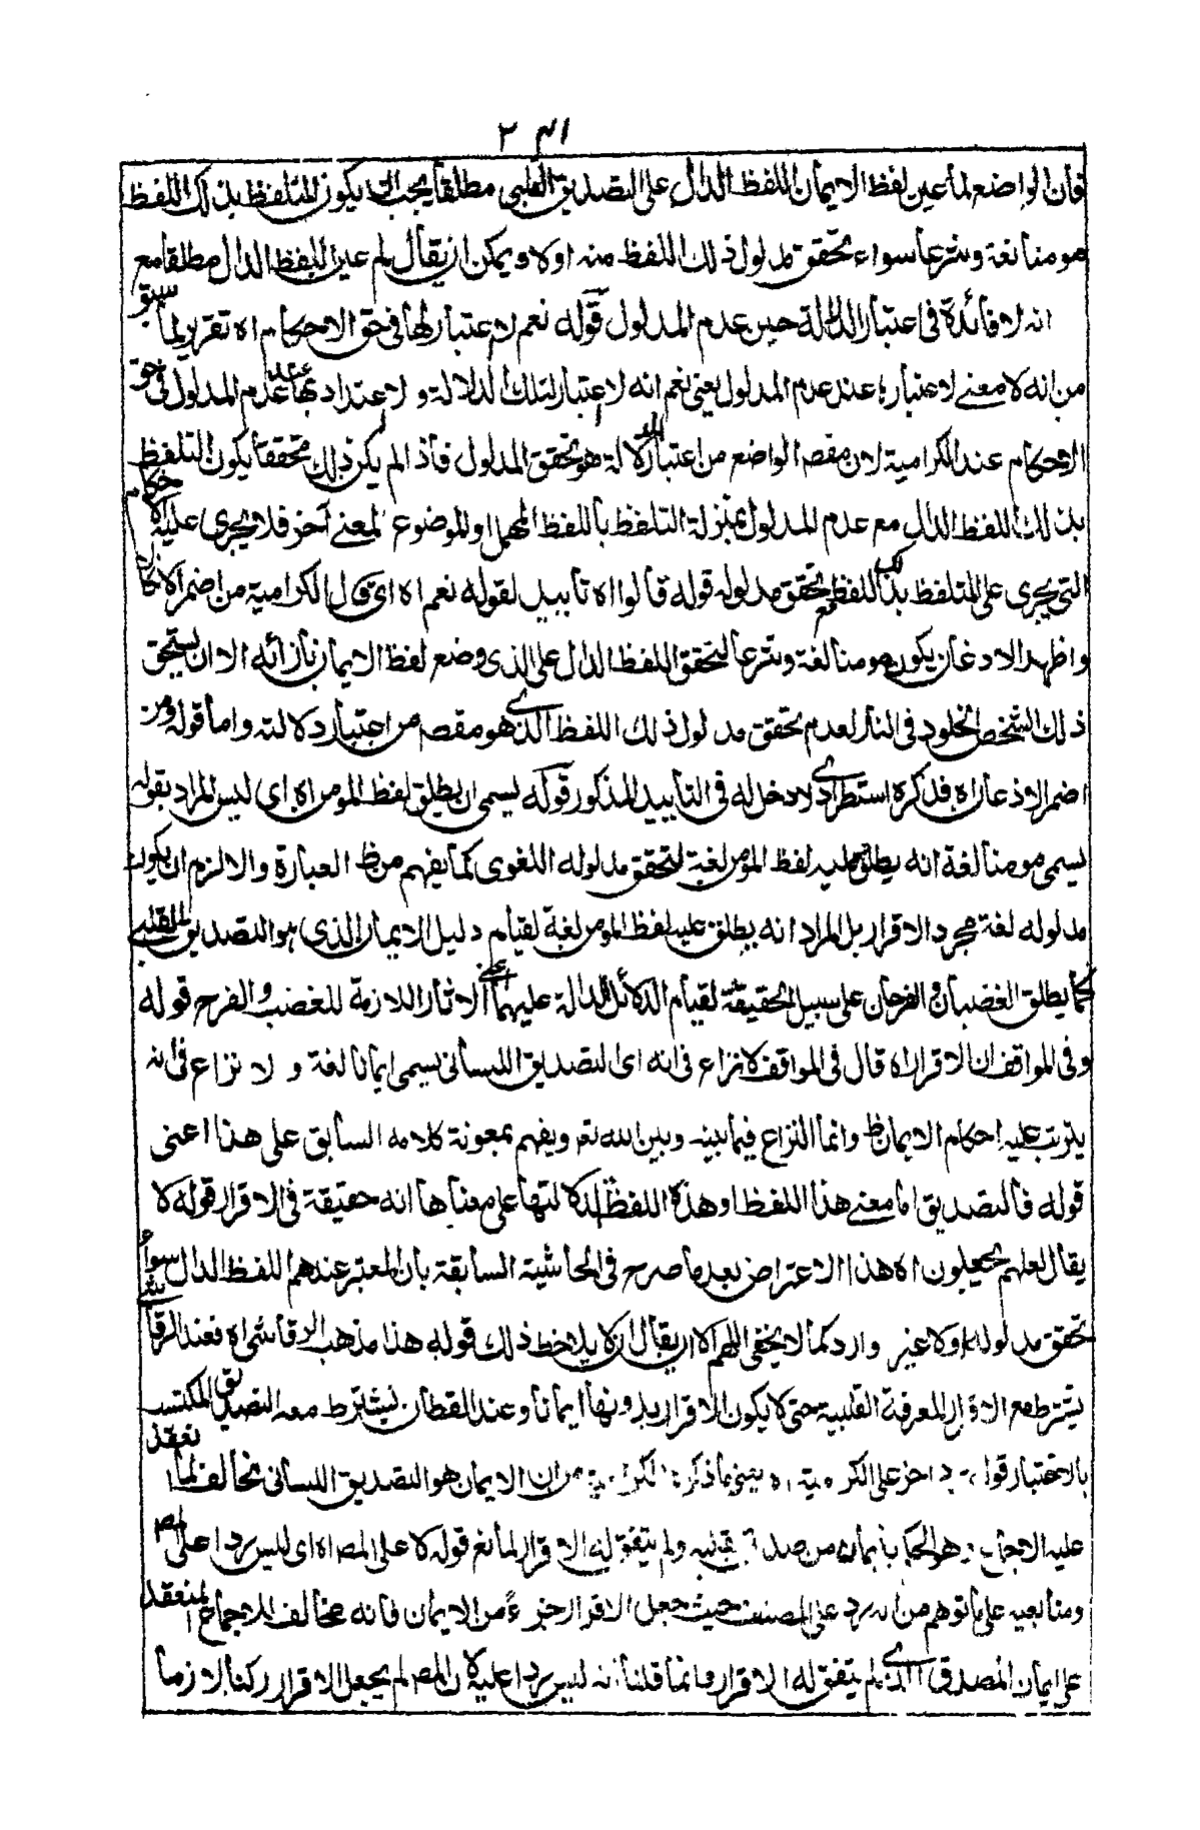 فان الواضع لما عين لفظ الايمان اللفظ الدال على التصديق القلبي مطلقا يجب ان يكون المتلفظ بذلك اللفظ
مومنا لغة وشرعا سواء تحقق مدلول ذلك اللفظ منه اولا ويمكن ان يقال لم عين اللفظ الدال مطلقا مع
انه لا فائدة فى اعتبار الدلالة حين عدم المدلول قوله نعم لا اعتبار لها فى حق الاحكام اه تقرير لما سبق
من انه لا معنى لاعتبارها عند عدم المدلول يعنى نعم انه لا اعتبار لتلك الدلالة ولا اعتداد بها عند عدم المدلول فى حق
الاحكام عند الكرامية لان مقصد الواضع من اعتبار الدلالة هو تحقق المدلول فاذا لم يكن ذلك متحققا يكون التلفظ
بذلك اللفظ الدال مع عدم المدلول بمنزلة التلفظ باللفظ المهمل او الموضوع لمعنى آخر فلا يجرى عليه الاحكام
التى يجرى على المتلفظ بذلك اللفظ مع تحقق مدلوله قوله قالوا اه تأييد لقوله نعم اه اى قال الكرامية من اضمر الانكار
واظهر الاذعان يكون مومنا لغة وشرعا لتحقق اللفظ الدال على الذى وضع لفظ الايمان بازائه الا ان يستحق
ذلك الشخص الخلود فى النار لعدم تحقق مدلول ذلك اللفظ الذى هو مقصد من اعتبار دلالته واما قوله ومن
اضمر الاذعان اه فذكره استطرادى لا دخل له فى التأييد المذكور قوله يسمى ان يطلق لفظ المومن اه اى ليس المراد بقوله
يسمى مومنا لغة انه يطلق عليه لفظ المومن لغة لتحقق مدلوله اللغوى كما يفهم من ظ العبارة والا لزم ان يكون
مدلوله لغة مجرد الاقرار بل المراد انه يطلق عليه لفظ المومن لغة لقيام دليل الايمان الذى هو التصديق القلبى
كما يطلق الغضبان والفرحان على سبيل الحقيقة لقيام الدلائل الدالة عليهما اعنى الاثار اللازمة للغضب والفرح قوله
وفى المواقف ان الاقرار اه قال فى المواقف لا نزاع فى انه اى التصديق اللسانى يسمى ايمانا لغة ولا نزاع فى انه
يترتب عليه احكام الايمان ظ وانما النزاع فيما بينه وبين الله تعم ويفهم بمعونة كلامه السابق على هذا اعنى
قوله فالتصديق اما معنى هذا اللفظ او هذه اللفظة لدلالتها على معناها انه حقيقة فى الاقرار قوله لا
يقال لعلهم يجعلون اه هذا الاعتراض بعد ما صرح فى الحاشية السابقة بان المعتبر عندهم اللفظ الدال سواء
تحقق مدلوله اولا غير وارد كما لا يخفى اللهم الا ان يقال ان لا يلاحظ ذلك قوله هذا مذهب الرقاشى اه فعند الرقاشى
يشترط مع الاقرار المعرفة القلبية حتى لا يكون الاقرار بدونها ايمانا وعند القطان يشترط معه التصديق المكتسب
بالاختيار قوله اخر على الكرامية اه يعنى ما ذكره الكرامية من ان الايمان هو التصديق اللسانى مخالف لما انعقد
عليه الاجماع وهو الحكم بايمان من صدق بقلبه ولم يتفق له الاقرار لمانع قوله لا على المصاه اى ليس ردا على المص
ومتابعيه على ما توهم من انه رد على المصنف حيث جعل الاقرار جزءً من الايمان فانه مخالف للاجماع المنعقد
على ايمان المصدق الذى لم يتفق له الاقرار وانما قلنا انه ليس ردا عليه لان المص لم يجعل الاقرار ركنا لازما